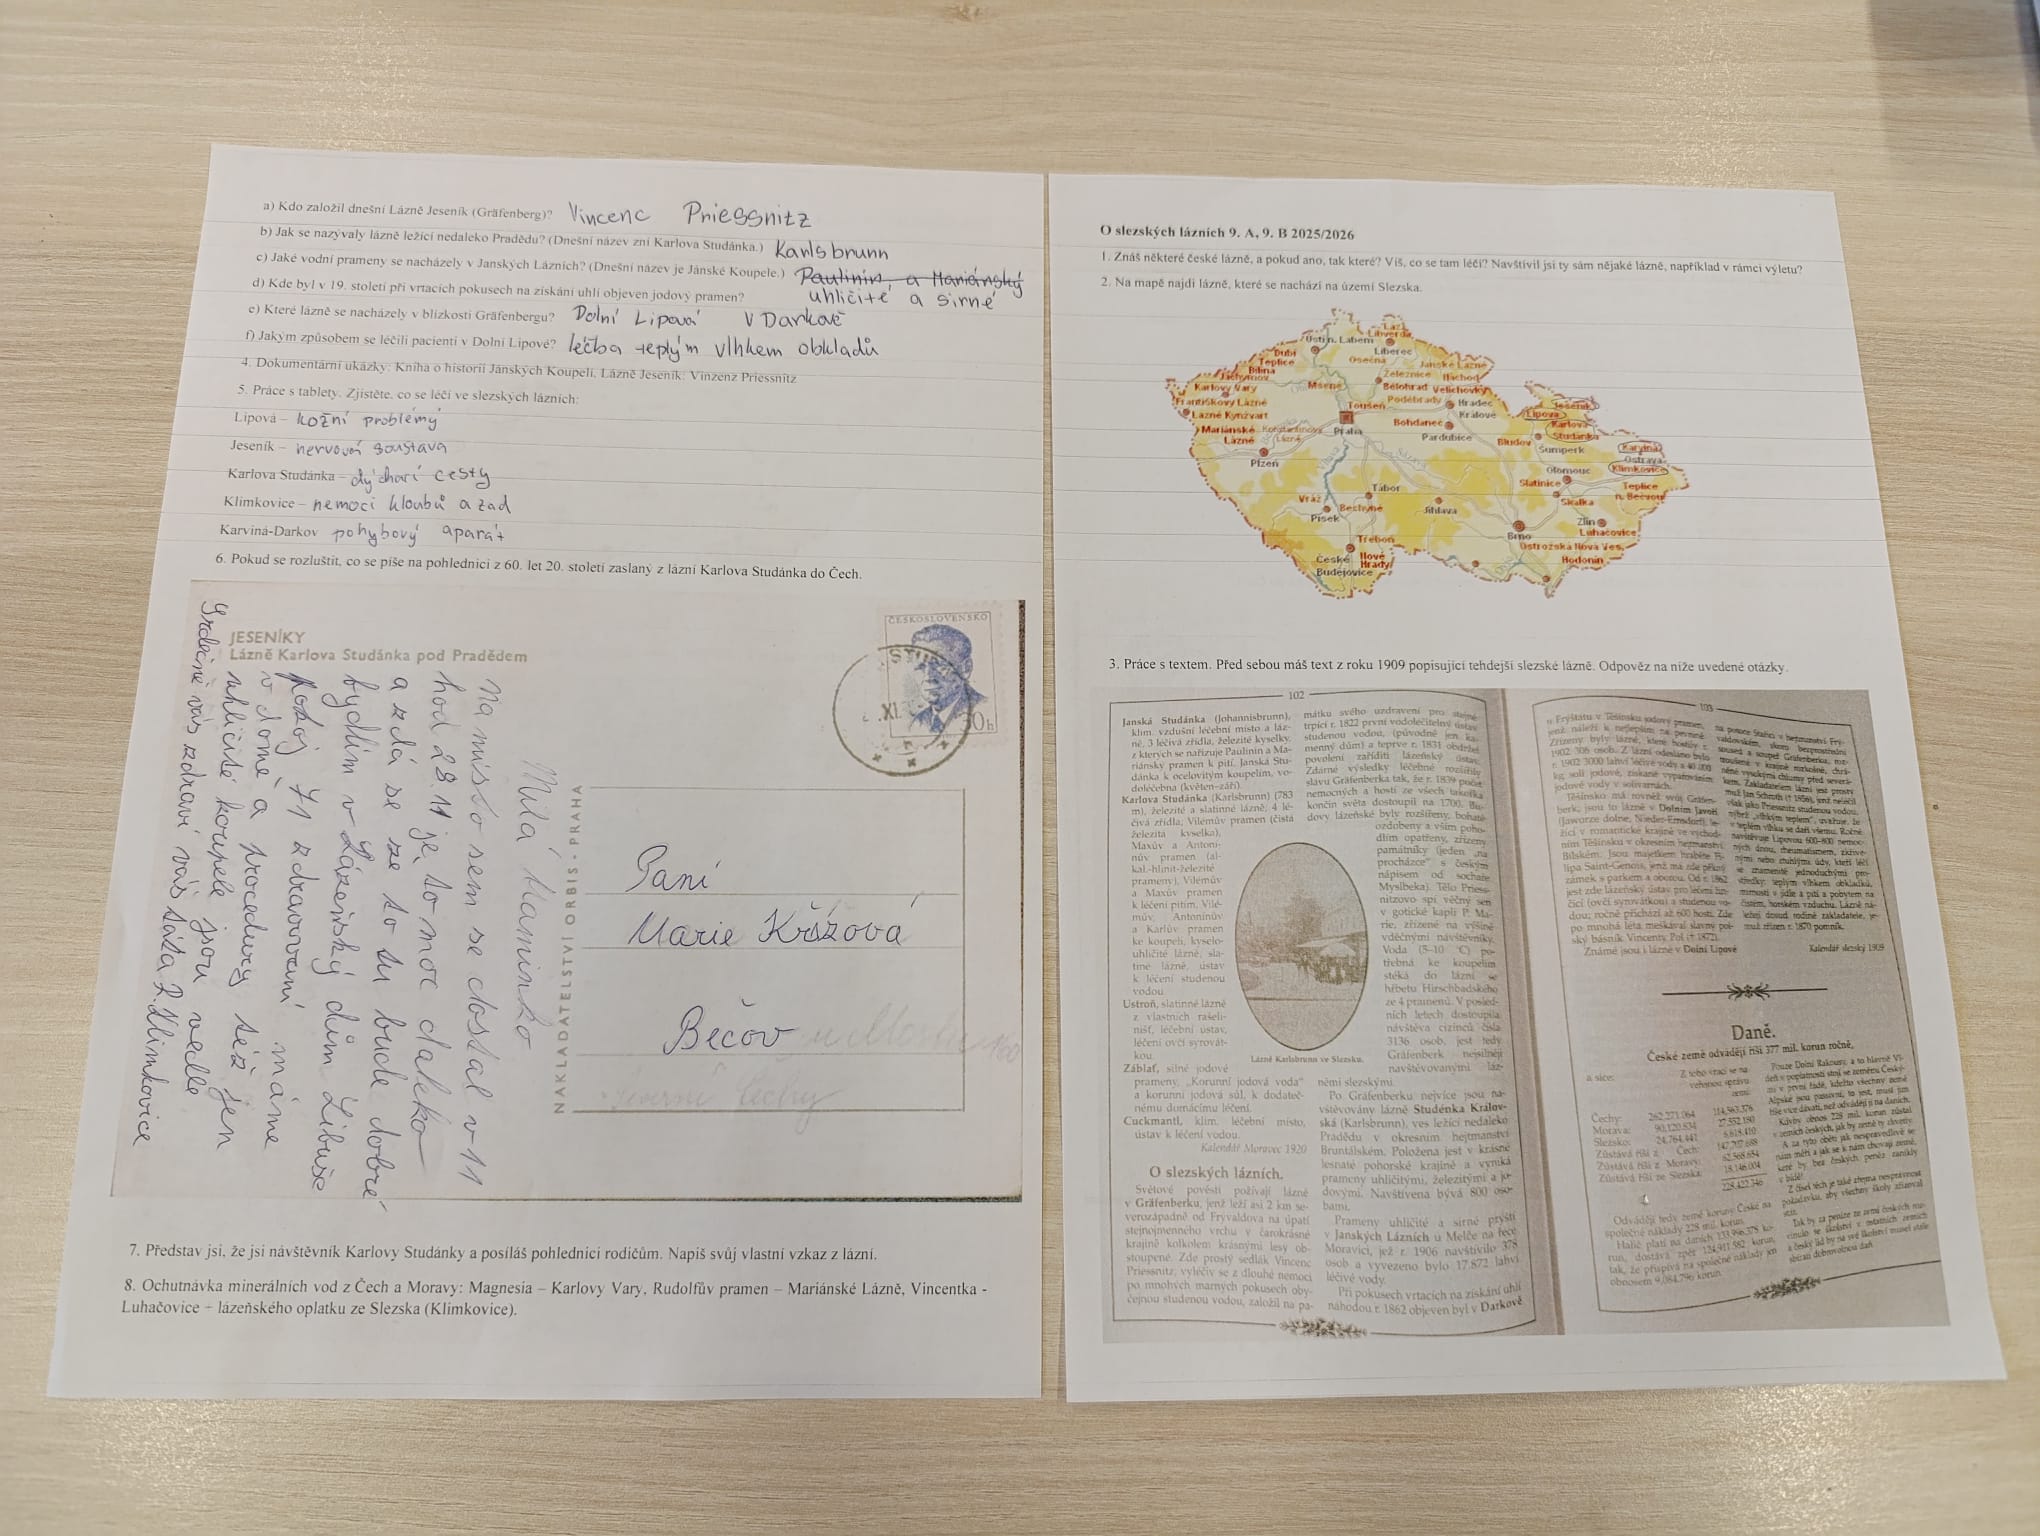 a) Kdo založil dnešní Lázně Jeseník (Gräfenberg)? Vincenc Priessnitz
b) Jak se nazývaly lázně ležící nedaleko Pradědu? (Dnešní název zní Karlova Studánka.) Karlsbrunn
c) Jaké vodní prameny se nacházely v Janských Lázních? (Dnešní název je Jánské Koupele.) Paulinin, a Mariánský
uhličité a sirné
d) Kde byl v 19. století při vrtacích pokusech na získání uhlí objeven jodový pramen?
V Darkově
e) Které lázně se nacházely v blízkosti Gräfenbergu? Dolní Lipová
f) Jakým způsobem se léčili pacienti v Dolní Lipové? léčba teplým vlhkem obkladů
4. Dokumentární ukázky: Kniha o historii Jánských Koupelí, Lázně Jeseník: Vinzenz Priessnitz
5. Práce s tablety. Zjistěte, co se léčí ve slezských lázních:
Lipová – kožní problémy
Jeseník – nervová soustava
Karlova Studánka – dýchací cesty
Klimkovice – nemoci kloubů a zad
Karviná-Darkov pohybový aparát
6. Pokus se rozluštit, co se píše na pohlednici z 60. let 20. století zaslaný z lázní Karlova Studánka do Čech.
JESENÍKY
Lázně Karlova Studánka pod Pradědem
ČESKOSLOVENSKO
30h
NAKLADATELSTVÍ ORBIS - PRAHA
Milá Maminko
na místo sem se dostal v 11
hod 28.11 je to moc daleko
a zdá se že to tu bude dobré
bydlím v Lázeňský dům Libuše
Pokoj 71 zdravotní máme
v domě a procedury též jen
uhličité koupele jsou vedle
Srdečně vás zdraví váš táta
Klimkovice
Paní
Marie Křížová
Bečov u Mostu 160
severní Čechy
7. Představ jsi, že jsi návštěvník Karlovy Studánky a posíláš pohlednici rodičům. Napiš svůj vlastní vzkaz z lázní.
8. Ochutnávka minerálních vod z Čech a Moravy: Magnesia – Karlovy Vary, Rudolfův pramen – Mariánské Lázně, Vincentka -
Luhačovice + lázeňského oplatku ze Slezska (Klimkovice).
O slezských lázních 9. A, 9. B 2025/2026
1. Znáš některé české lázně, a pokud ano, tak které? Víš, co se tam léčí? Navštívil jsi ty sám nějaké lázně, například v rámci výletu?
2. Na mapě najdi lázně, které se nachází na území Slezska.
Lázně Libverda
Ústí n. Labem
Liberec
Dubí
Teplice
Bílina
Osečná
Jáchymov
Karlovy Vary
Mšené
Železnice
Janské Lázně
Náchod
Bělohrad
Velichovky
Františkovy Lázně
Lázně Kynžvart
Toušeň
Poděbrady
Hradec Králové
Mariánské Lázně
Konstantinovy Lázně
Praha
Bohdaneč
Pardubice
Plzeň
Jeseník
Lipová
Karlova Studánka
Bludov
Šumperk
Karviná
Ostrava
Klimkovice
Olomouc
Slatinice
Teplice n. Bečvou
Skalka
Vráž
Tábor
Bechyně
Písek
Jihlava
Zlín
Luhačovice
Brno
Ostrožská Nová Ves
Hodonín
Třeboň
České Budějovice
Nové Hrady
Vltava
Sázava
3. Práce s textem. Před sebou máš text z roku 1909 popisující tehdejší slezské lázně. Odpověz na níže uvedené otázky.
102
Janská Studánka (Johannisbrunn),
klim. vzdušní léčební místo a láz-
ně, 3 léčivá zřídla, železité kyselky,
z kterých se nařizuje Paulinin a Ma-
riánský pramen k pití. Janská Stu-
dánka k ocelovitým koupelím, vo-
doléčebna (květen–září).
Karlova Studánka (Karlsbrunn) (783
m), železité a slatinné lázně, 4 lé-
čivá zřídla, Vilémův pramen (čistá
železitá kyselka),
Maxův a Antoni-
nův pramen (al-
kal.-hlinit-železité
prameny), Vilémův
a Maxův pramen
k léčení pitím, Vilé-
mův, Antonínův
a Karlův pramen
ke koupeli, kyselo-
uhličité lázně, sla-
tinné lázně, ústav
k léčení studenou
vodou.
Ustroň, slatinné lázně
z vlastních rašeli-
nišť, léčební ústav,
léčení ovčí syrovát-
kou.
Záblať, silné jodové
prameny, „Korunní jodová voda"
a korunní jodová sůl, k dodateč-
nému domácímu léčení.
Cuckmantl, klim. léčební místo,
ústav k léčení vodou.
Kalendář Moravec 1920
O slezských lázních.
Světové pověsti požívají lázně
v Gräfenberku, jenž leží asi 2 km se-
verozápadně od Frývaldova na úpatí
stejnojmenného vrchu v čarokrásné
krajině kolkolem krásnými lesy ob-
stoupené. Zde prostý sedlák Vincenc
Priessnitz, vyléčiv se z dlouhé nemoci
po mnohých marných pokusech oby-
čejnou studenou vodou, založil na pa-
mátku svého uzdravení pro stejně
trpící r. 1822 první vodoléčitelný ústav
studenou vodou, (původně jen ka-
menný dům) a teprve r. 1831 obdržel
povolení zaříditi lázeňský ústav.
Zdárné výsledky léčebné rozšířily
slávu Gräfenberka tak, že r. 1839 počet
nemocných a hostí ze všech takořka
končin světa dostoupil na 1700. Bu-
dovy lázeňské byly rozšířeny, bohatě
ozdobeny a vším poho-
dlím opatřeny, zřízeny
památníky (jeden „na
procházce" s českým
nápisem od sochaře
Myslbeka). Tělo Priess-
nitzovo spí věčný sen
v gotické kapli P. Ma-
rie, zřízené na výšině
vděčnými návštěvníky.
Voda (5–10 °C) po-
třebná ke koupelím
stéká do lázní se
hřbetu Hirschbadského
ze 4 pramenů. V posled-
ních letech dostoupila
návštěva cizinců čísla
3136 osob, jest tedy
Gräfenberk nejsilněji
navštěvovanými láz-
němi slezskými.
Lázně Karlsbrunn ve Slezsku.
Po Gräfenberku nejvíce jsou na-
vštěvovány lázně Studénka Králov-
ská (Karlsbrunn), ves ležící nedaleko
Pradědu v okresním hejtmanství
Bruntálském. Položena jest v krásné
lesnaté pohorské krajině a vyniká
prameny uhličitými, železitými a jo-
dovými. Navštívena bývá 800 oso-
bami.
Prameny uhličité a sirné pryští
v Janských Lázních u Melče na řece
Moravici, jež r. 1906 navštívilo 378
osob a vyvezeno bylo 17.872 lahví
léčivé vody.
Při pokusech vrtacích na získání uhlí
náhodou r. 1862 objeven byl v Darkově
103
u Fryštátu v Těšínsku jodový pramen,
jenž náleží k nejlepším na pevnině.
Zřízeny byly lázně, které hostily r.
1902 306 osob. Z lázní odesláno bylo
r. 1902 3000 lahví léčivé vody a 40 000
kg soli jodové, získané vypařováním
jodové vody v solivarnách.
Těšínsko má rovněž svůj Gräfen-
berk; jsou to lázně v Dolním Javoří
(Jaworze dolne, Nieder-Ernsdorf), le-
žící v romantické krajině ve východ-
ním Těšínsku v okresním hejtmanství
Bílském. Jsou majetkem hraběte Fi-
lipa Saint-Genois, jenž má zde pěkný
zámek s parkem a oborou. Od r. 1862
jest zde lázeňský ústav pro léčení žin-
čicí (ovčí syrovátkou) a studenou vo-
dou; ročně přichází až 600 hostí. Zde
po mnohá léta meškával slavný pol-
ský básník Vincenty Pol († 1872).
Známé jsou i lázně v Dolní Lipové
na potoce Staříči v hejtmanství Frý-
valdovském, skoro bezprostřední
soused a soupeř Gräfenberka, roz-
troušené v krajině rozkošné, chrá-
něné vysokými chlumy před severá-
kem. Zakladatelem lázní jest prostý
muž Jan Schroth († 1856), jenž neléčil
však jako Priessnitz studenou vodou,
nýbrž „vlhkým teplem", uvažuje, že
v teplém vlhku se daří všemu. Ročně
navštěvuje Lipovou 600–800 nemoc-
ných dnou, rheumatismem, zkřive-
nými nebo ztuhlými údy, kteří léčí
se znamenitě jednoduchými pro-
středky: teplým vlhkem obkladů,
mírností v jídle a pití a pobytem na
čistém, horském vzduchu. Lázně ná-
ležejí dosud rodině zakladatele, je-
muž zřízen r. 1870 pomník.
Kalendář slezský 1909
Daně.
České země odvádějí říši 377 mil. korun ročně,
a sice:
Z toho vrací se na
veřejnou správu
zemí:
Čechy: 262,271.064 114,563.376
Morava: 90,120.534 27,552.180
Slezsko: 24,764.441 6,618.410
Zůstává říši z Čech: 147,707.688
Zůstává říši z Moravy: 62,568.654
Zůstává říši ze Slezska: 18,146.004
228,422.346
Odvádějí tedy země koruny České na
společné náklady 228 mil. korun.
Halič platí na daních 133,996.378 ko-
run, dostává zpět 124,911.582 korun,
tak, že přispívá na společné náklady jen
obnosem 9,084.796 korun.